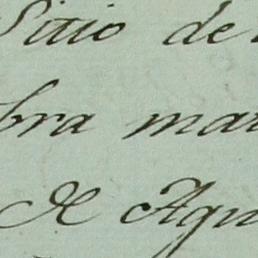 Sitio de
bra mar
De Agu